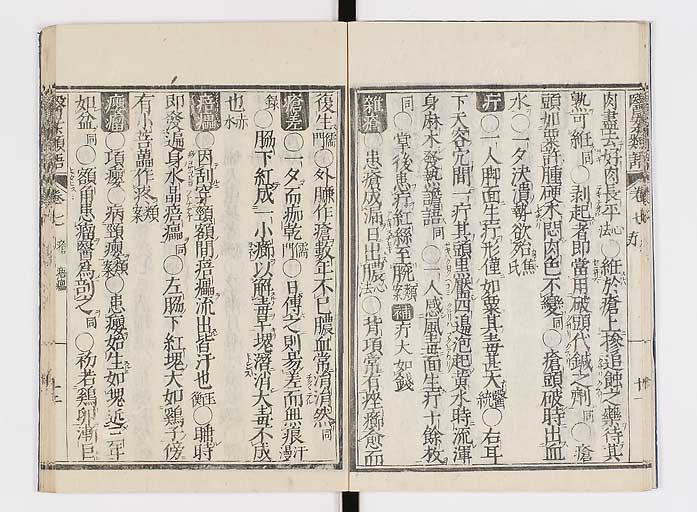 肉盡去好肉長平 心法 ○紝於瘡上摻追蝕之藥待其
熟可紝 同 ○剥起者即當用破頭代鍼之劑 同 ○瘡
頭如粟許腫硬木悶肉色不變 同 ○瘡頭破時出血
水 ○一夕決潰執欲殆 焦氏
疔 ○一人脚面生疔形僅如粟其毒甚大 醫統 ○右耳
下天容穴間一疔其頭黒靨四邉泡起黄水時流渾
身麻木發熱譫語 同 ○一人感風毒面生疔十餘枚
同 ○掌後患疔紅絲至腕 類案 補 疔大如錢
雜瘡 ○患瘡成漏日出膿 心法 ○背項常有痤癤愈而
復生 儒門 ○外臁作瘡數年不已膿血常涓涓然 同
瘡差 ○一夕而痂乾 儒門 ○日傅之則易差而無痕 汗漫
錄 ○腸下紅成一小癤以解毒 塊潛消大毒不成
也 赤水
痦㿔 ○因刮穿頸額間痦㿔流出皆汗也 玉衡 ○睡時
即發遍身水晶痦㿔 同 ○左腸下紅塊大如鷄子傍
有小蓓蕾作疼 類案
癭瘤 ○項癭 ○病頸癭 類案 ○患癭始生如塊近一年
如盆 同 ○額角患瘤醫為剖之 同 ○初若鷄卵漸巨
卷七